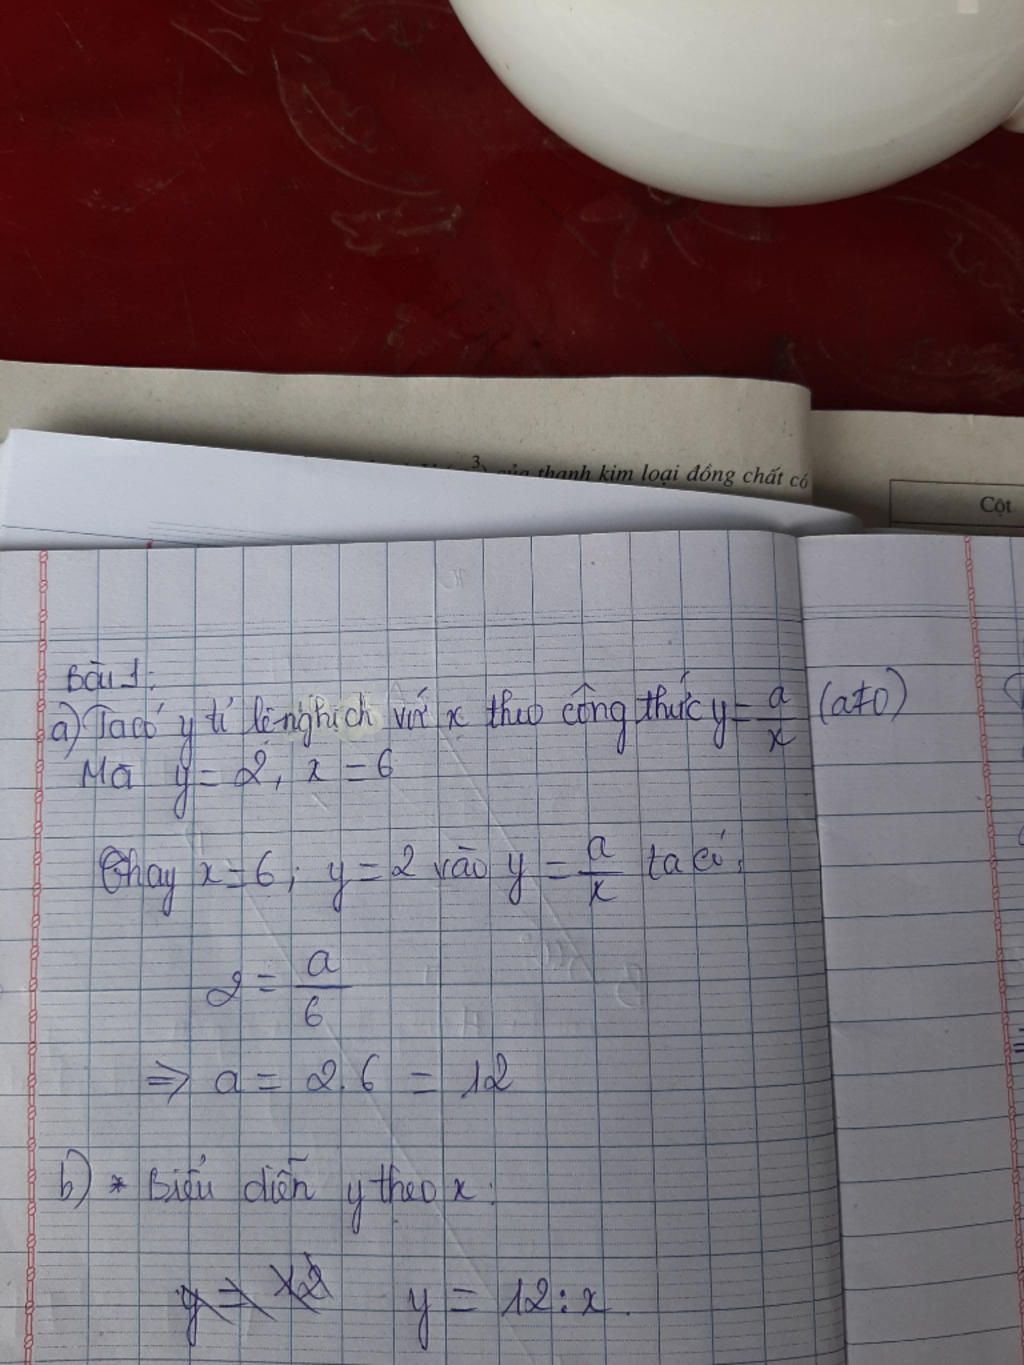 3) của thanh kim loại đồng chất có
Cột
Bài 1:
a) Ta có y tỉ lệ nghịch với x theo công thức y = a/x (a≠0)
Mà y = 2, x = 6
Thay x = 6; y = 2 vào y = a/x ta có:
2 = a/6
=> a = 2.6 = 12
b) * Biểu diễn y theo x:
y = 12 y = 12 : x.